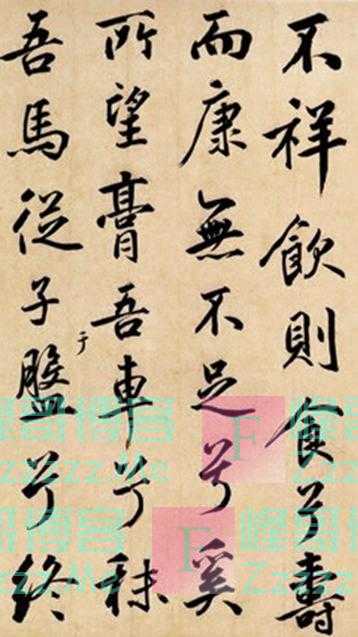 不祥飲則食兮壽
而康無不足兮奚
所望膏吾車兮秣
吾馬從子于盤兮終
博客
zzzz.Me
F
F